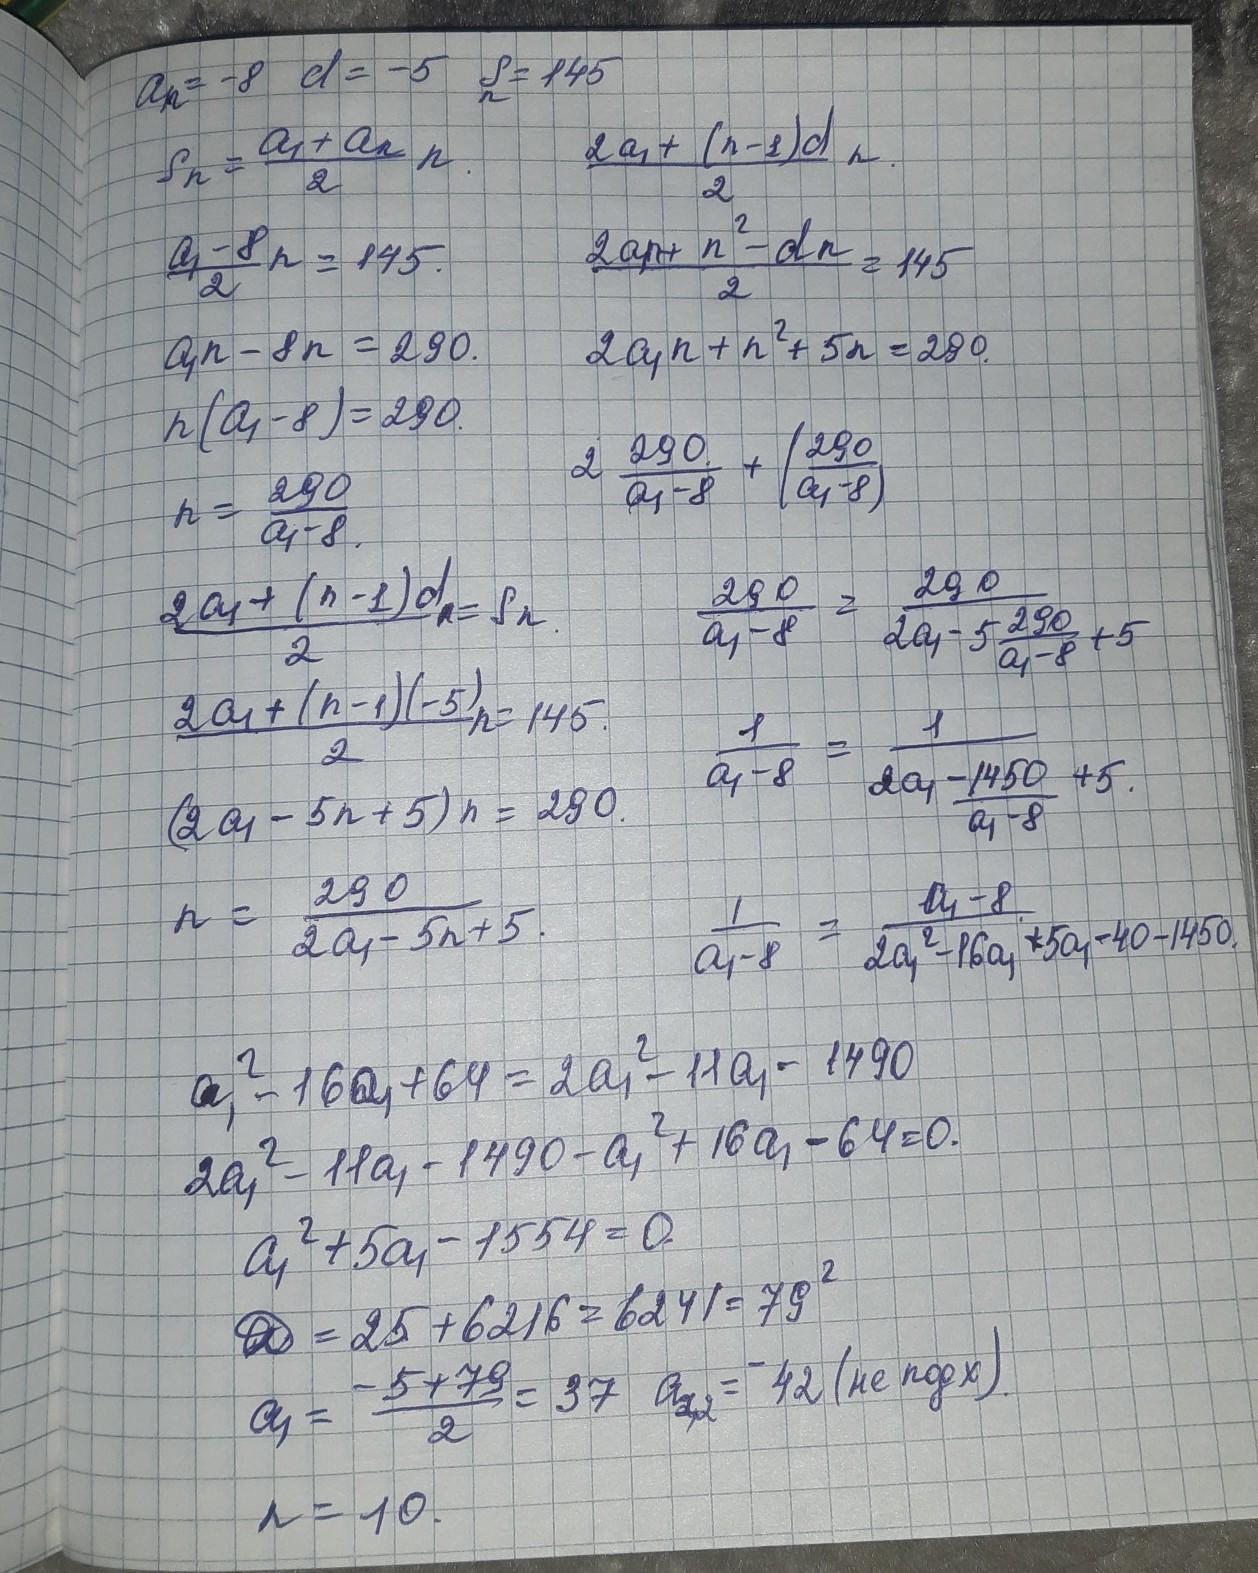 aₙ = -8 d = -5 Sₙ = 145
Sₙ = (a₁ + aₙ)/2 n. (2a₁ + (n-1)d)/2 n.
(a₁ - 8)/2 n = 145. (2a₁n + n² - dn)/2 = 145
a₁n - 8n = 290. 2a₁n + n² + 5n = 290.
n(a₁ - 8) = 290.
2 290/(a₁-8) + (290/(a₁-8))
n = 290/(a₁-8).
(2a₁ + (n-1)d)/2 n = Sₙ. 290/(a₁-8) = 290/(2a₁ - 5 290/(a₁-8) + 5)
(2a₁ + (n-1)(-5))/2 n = 145. 1/(a₁-8) = 1/(2a₁ - 1450/(a₁-8) + 5).
(2a₁ - 5n + 5)n = 290.
n = 290/(2a₁ - 5n + 5). 1/(a₁-8) = (a₁-8)/(2a₁² - 16a₁ + 5a₁ - 40 - 1450).
a₁² - 16a₁ + 64 = 2a₁² - 11a₁ - 1490
2a₁² - 11a₁ - 1490 - a₁² + 16a₁ - 64 = 0.
a₁² + 5a₁ - 1554 = 0.
D = 25 + 6216 = 6241 = 79²
a₁ = (-5 + 79)/2 = 37 a₂ = -42 (не подх).
n = 10.